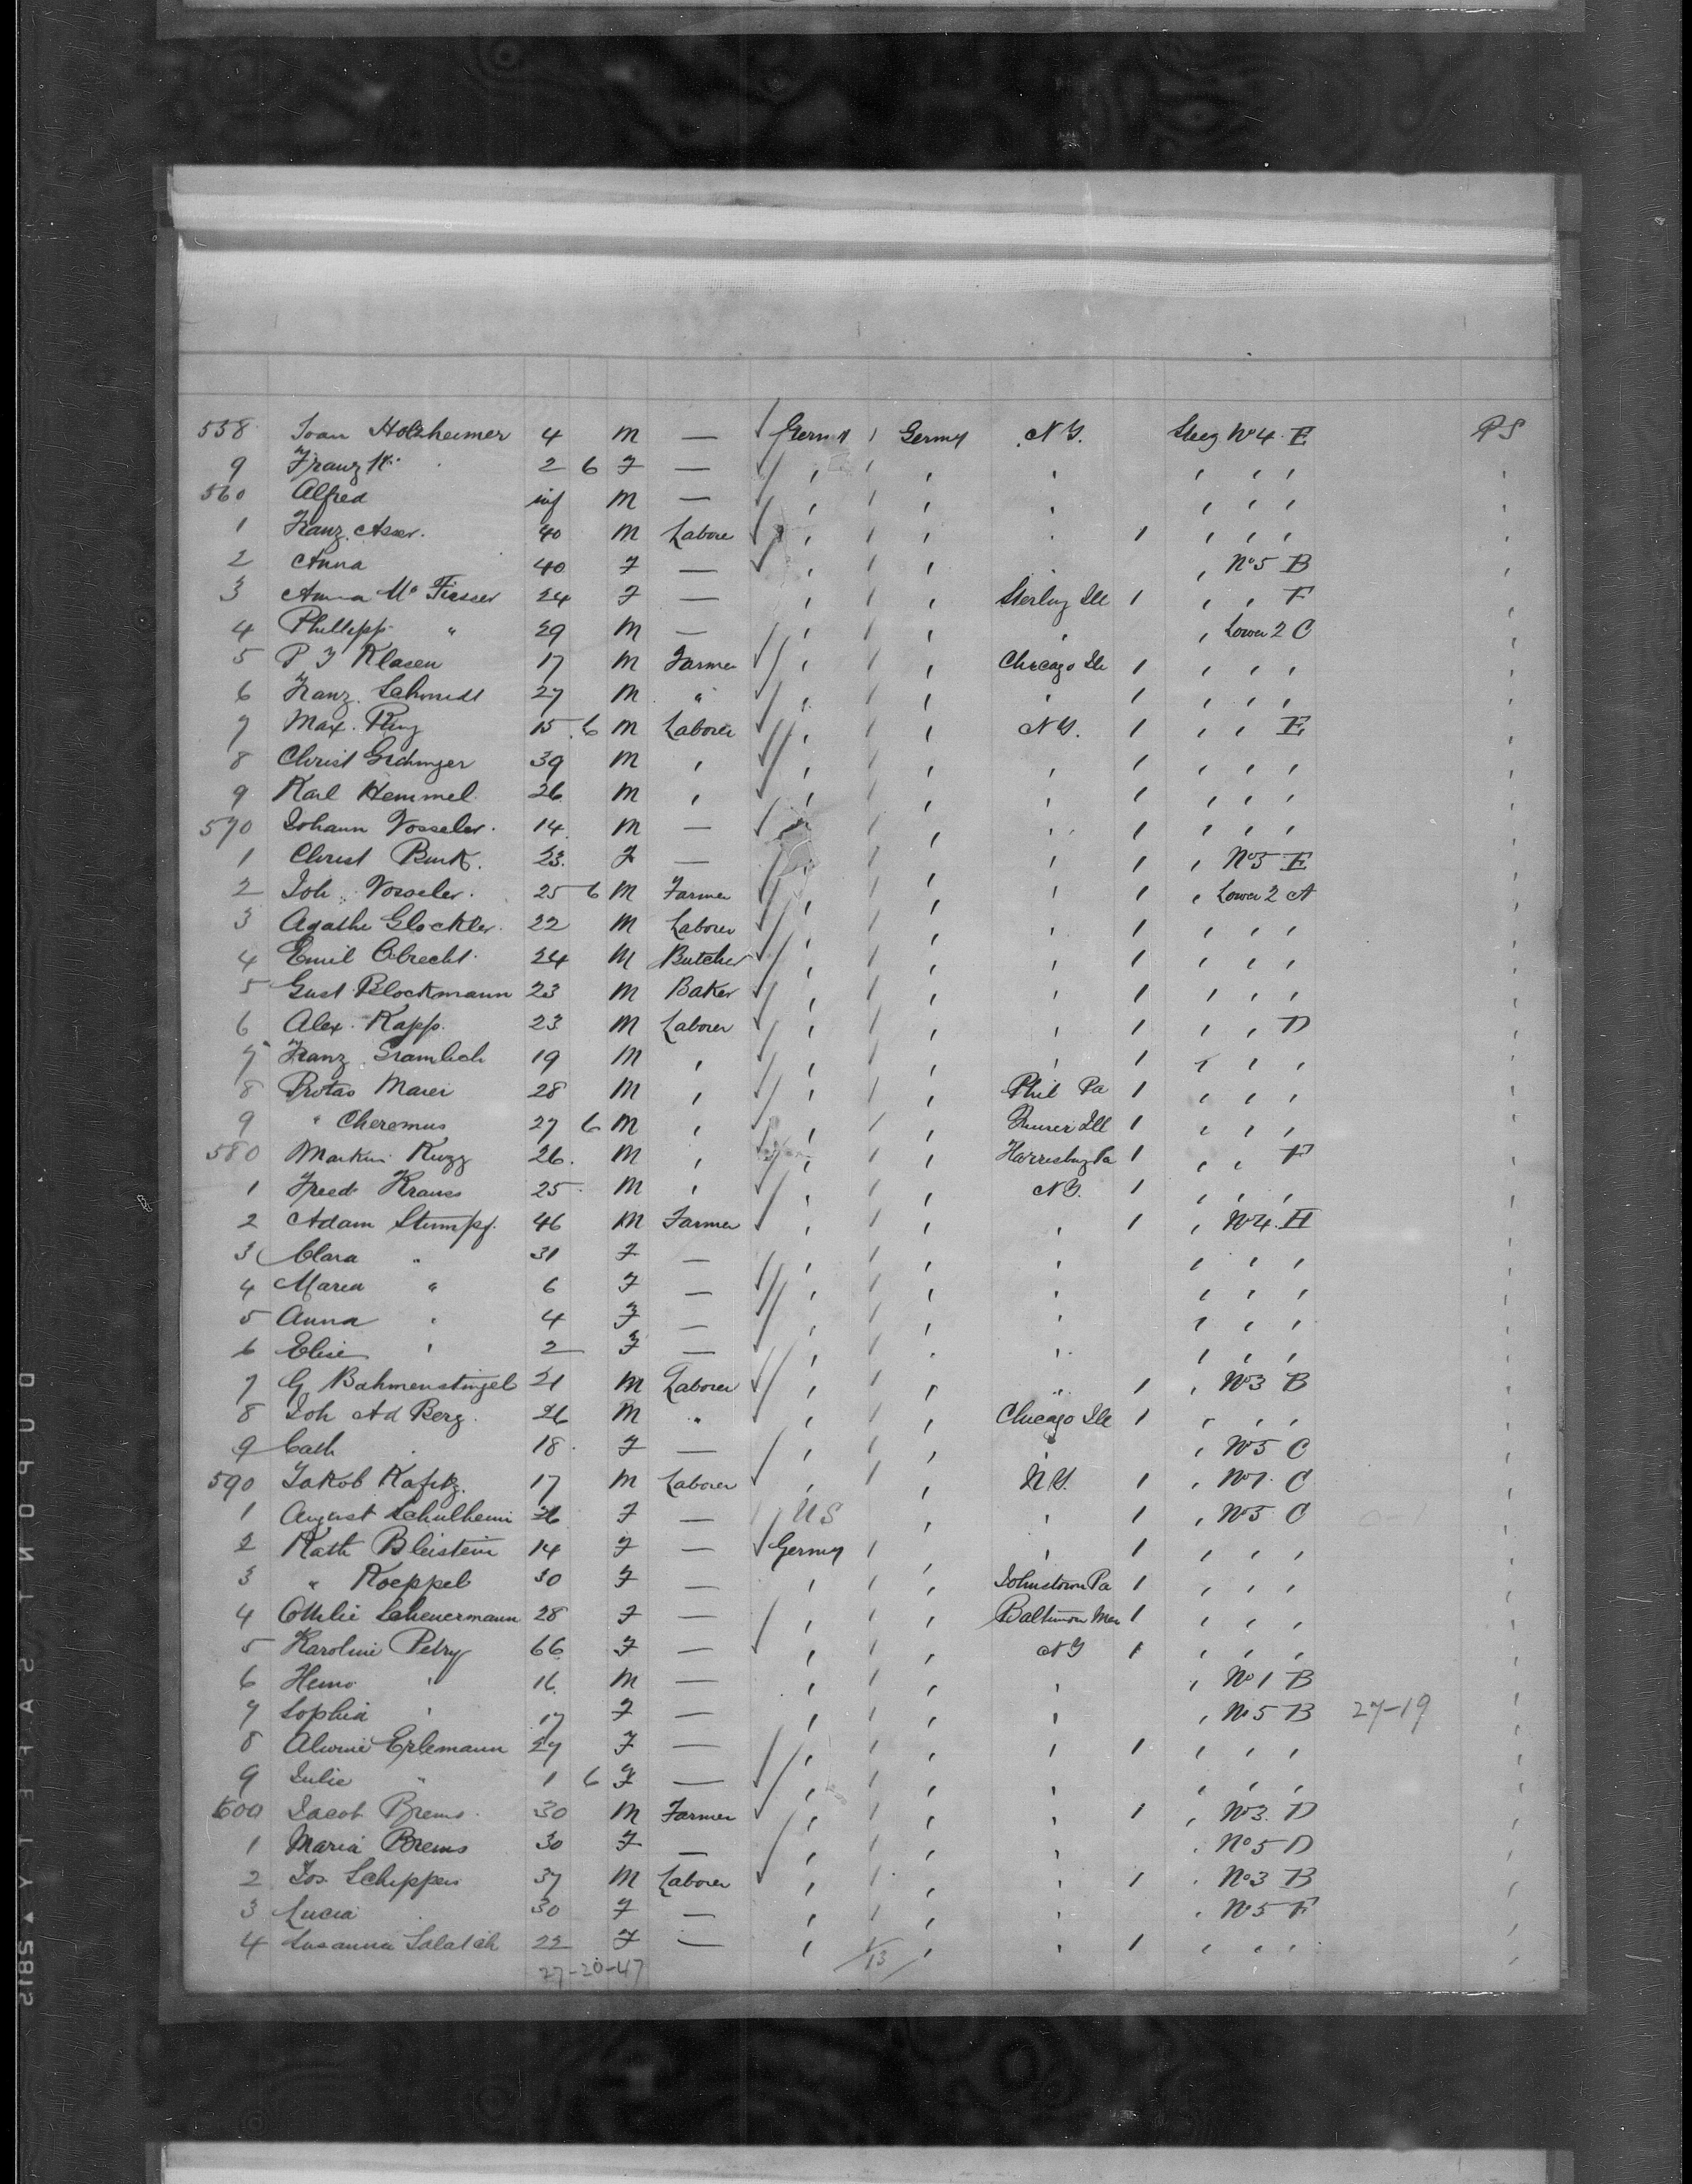 558 Ivan Holzheimer 4 M — Germy 1 Germy N Y. Steeg No 4 E P S
9 Franz K. 2 6 F — , 1 , , , , , ,
560 Alfred inf M — , 1 , , , , , ,
1 Franz Asser. 40 M Labore , 1 , , 1 , , , ,
2 Anna 40 F — , 1 , , , No 5 B ,
3 Anna Ma Fiesser 24 F — , 1 , Sterling Ill 1 , , F ,
4 Phillipp " 29 M — , 1 , , , Lower 2 C ,
5 P J Klasen 17 M Farmer , 1 , Chicago Ill 1 , , , ,
6 Franz Schmidt 27 M " , 1 , , 1 , , , ,
7 Max. King 15 6 M Laborer , 1 , N Y. 1 , , E ,
8 Christ Gschinger 39 M , , 1 , , 1 , , , ,
9 Karl Hemmel 26 M , , 1 , , 1 , , , ,
570 Johann Vosseler. 14 M — 1 , , 1 , , , ,
1 Christ Burk. 23. F — , 1 , , 1 , No 5 E ,
2 Joh. Vosseler. 25 6 M Farmer , 1 , , 1 , Lower 2 A ,
3 Agathe Glockler. 22 M Laborer , 1 , , 1 , , , ,
4 Emil Obrecht. 24 M Butcher , 1 , , 1 , , , ,
5 Gust Blockmann 23 M Baker , 1 , , 1 , , , ,
6 Alex. Kapp. 23 M Laborer , 1 , , 1 , , D ,
7 Franz Gramlich 19 M , , 1 , , 1 , , , ,
8 Protas Maier 28 M , , 1 , Phil Pa 1 , , , ,
9 " Cheremus 27 6 M , , 1 , Ill 1 , , , ,
580 Martin Kuzz 26. M , , 1 , Harrisburg Pa 1 , , F ,
1 Freed Krauss 25 M , , 1 , N Y. 1 , , , ,
2 Adam Stumpf. 46 M Farmer , 1 , , 1 , No 4 H ,
3 Clara " 31 F — , 1 , , , , , ,
4 Maria " 6 F — , 1 , , , , , ,
5 Anna " 4 F — , 1 , , , , , ,
6 Elise " 2 F — , 1 , , , , , ,
7 G Bahmenstingel 21 M Laborer , 1 , " 1 , No 3 B ,
8 Joh Ad Berg. 26 M " , 1 , Chicago Ill 1 , , , ,
9 Cath " 18 F — , 1 , , , No 5 C ,
590 Jakob Kafitz. 17 M Laborer , 1 , N Y. 1 , No 1. C ,
1 August Schulheim 26 F — U S , , 1 , No 5 C ,
2 Kath Bleistein 14 F — Germy 1 , , 1 , , , ,
3 " Koeppel 30 F — , 1 , Johnstown Pa 1 , , , ,
4 Ottilie Scheuermann 28 F — , 1 , Baltimore Mar 1 , , , ,
5 Karoline Petry 66 F — , 1 , N Y 1 , , , ,
6 Heino " 16. M — , 1 , , , No 1 B ,
7 Sophia " 17 F — , 1 , , , No 5 B 27-19 ,
8 Alwine Erlemann 27 F — , 1 , , 1 , , , ,
9 Julie " 1 6 F — , 1 , , , , , ,
600 Jacob Brems. 30 M Farmer , 1 , , 1 , No 3. D ,
1 Maria Brems 30 F — , 1 , , , No 5 D ,
2 Jos Schippers 37 M Laborer , 1 , , 1 , No 3 B ,
3 Lucia 30 F — , 1 , , , No 5 F ,
4 Susanna Salatch 22 F — , 1 , , 1 , , , ,
27-20-47 1/13
DUPONT SAFETY ▲ 2815